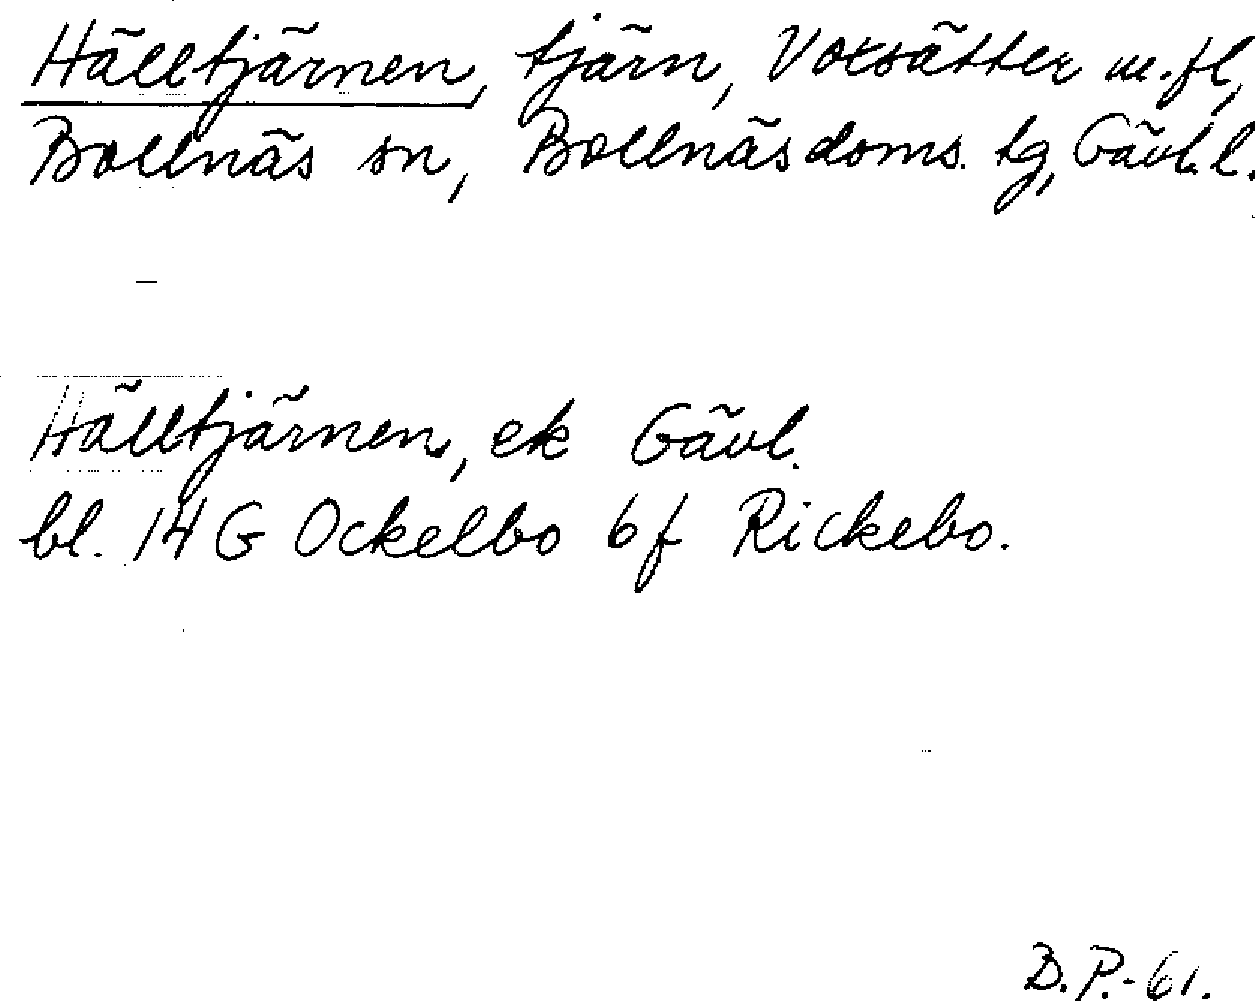 Hälltjärnen, tjärn, Voxsätter m.fl,
Bollnäs sn, Bollnäs doms. tg, Gävl. l.
–
Hälltjärnen, ek Gävl.
bl. 14 G Ockelbo 6 f Rickebo.
B.P.-61.